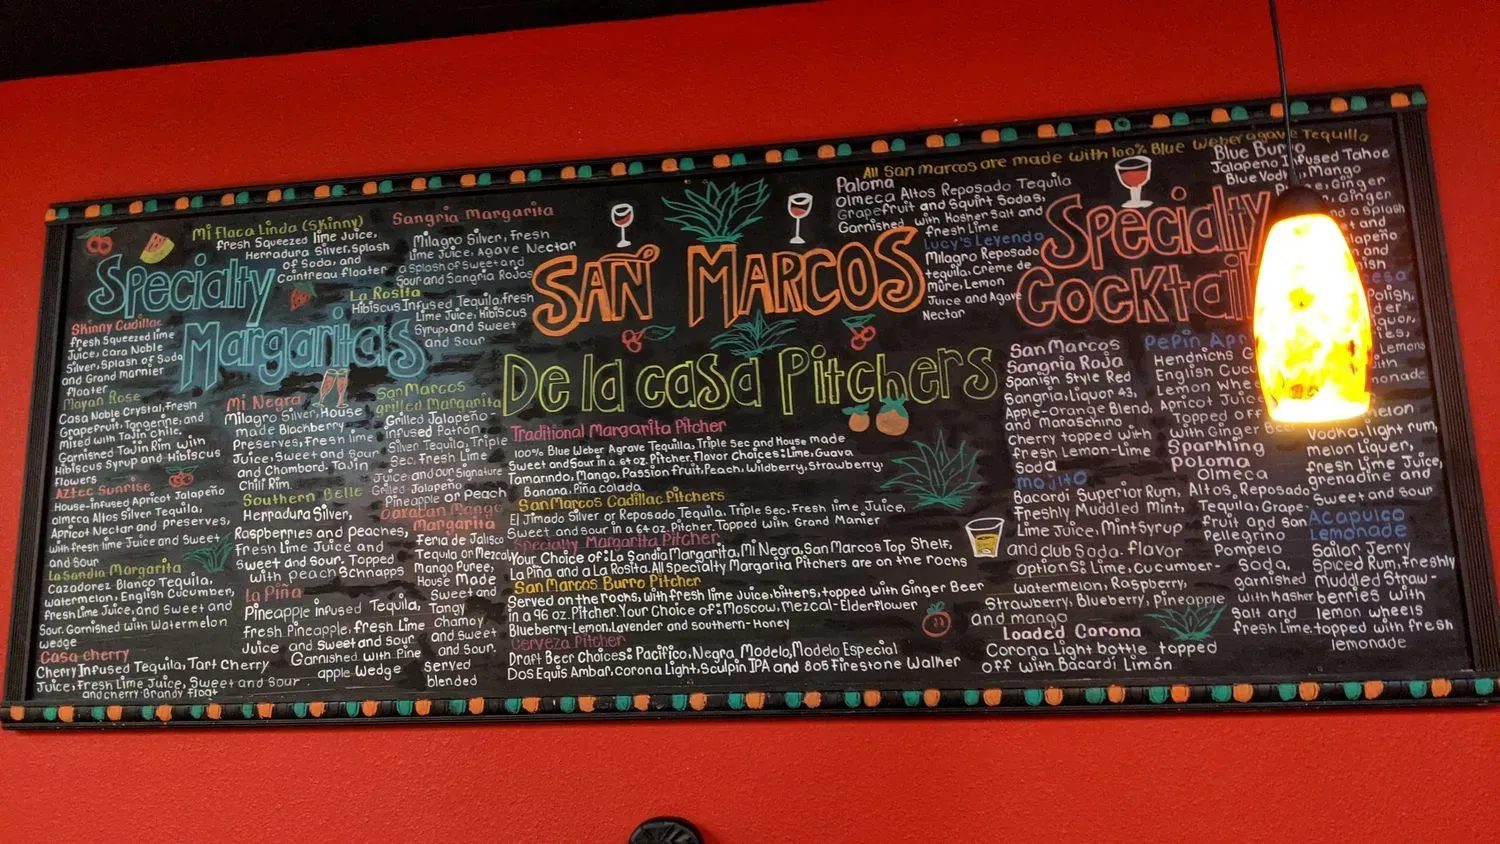 Specialty
Margaritas
Mi flaca Linda (Skinny)
fresh Squeezed lime Juice,
Herradura Silver, Splash
of Soda, and
Cointreau floater
Sangria Margarita
Milagro Silver, Fresh
lime Juice, Agave Nectar
a Splash of Sweet and
Sour and Sangria Rojas
La Rosita
Hibiscus Infused Tequila, fresh
Lime Juice, Hibiscus
Syrup, and Sweet
and Sour
Skinny Cadillac
fresh Squeezed lime
Juice, Cara Noble
Silver, Splash of Soda
and Grand Marnier
floater
Mayan Rose
Casa Noble Crystal, Fresh
Grapefruit, Tangerine, and
Mixed with Tajin Chile.
Garnished Tajin Rim With
Hibiscus Syrup and Hibiscus
Flowers
Aztec Sunrise
House-infused Apricot Jalapeño
olmeca Altos Silver Tequila,
Apricot Nectar and Preserves,
with fresh lime Juice and Sweet
and Sour
La Sandia Margarita
Cazadorez Blanco Tequila,
watermelon, English Cucumber,
fresh Lime Juice, and Sweet and
Sour. Garnished with Watermelon
wedge
Casa-cherry
Cherry Infused Tequila, Tart Cherry
Juice, Fresh Lime Juice, Sweet and Sour
and cherry Brandy float
Mi Negra
Milagro Silver, House
made Blackberry
Preserves, fresh lime
Juice, Sweet and Sour
and Chambord. Tajin
Chili Rim.
Southern Belle
Herradura Silver,
Raspberries and peaches,
Fresh Lime Juice and
Sweet and Sour. Topped
with peach Schnapps
La Piña
Pineapple infused Tequila,
fresh Pineapple, fresh Lime
Juice and sweet and Sour
Garnished with Pine
apple Wedge
San Marcos
grilled Margarita
Grilled Jalapeño-
infused Patron
Silver Tequila, Triple
Sec, Fresh Lime
Juice and our Signature
Grilled Jalapeño
Pineapple or Peach
Mango
Margarita
Feria de Jalisco
Tequila or Mezcal,
Mango Puree,
House Made
Sweet and
Tangy
Chamoy
and Sweet
and Sour.
Served
blended
SAN MARCOS
De la casa Pitchers
Traditional Margarita Pitcher
100% Blue Weber Agave Tequila, Triple Sec and House made
Sweet and Sour in a 64oz Pitcher. Flavor Choices: Lime, Guava
Tamarindo, Mango, Passion fruit, Peach, Wildberry, Strawberry,
Banana, Piña Colada
San Marcos Cadillac Pitchers
El Jimado Silver or Reposado Tequila, Triple Sec, Fresh lime Juice,
Sweet and sour in a 64oz. Pitcher. Topped with Grand Manier
Specialty Margarita Pitcher
Your Choice of: La Sandia Margarita, Mi Negra, San Marcos Top Shelf,
La Piña and a La Rosita. All Specialty Margarita Pitchers are on the rocks
San Marcos Burro Pitcher
Served on the rocks, with fresh lime Juice, bitters, topped with Ginger Beer
in a 96 oz. Pitcher. Your Choice of: Moscow, Mezcal-Elderflower
Blueberry-Lemon, Lavender and Southern-Honey
Cerveza Pitcher
Draft Beer Choices: Pacifico, Negra Modelo, Modelo Especial
Dos Equis Ambar, Corona Light, Sculpin IPA and 805 Firestone Walker
All San Marcos are made with 100% Blue Weber agave Tequilla
Specialty
Cocktail
Paloma
Olmeca Altos Reposado Tequila
Grapefruit and Squint Sodas,
Garnished with Kosher Salt and
fresh Lime
Lucy's Leyenda
Milagro Reposado
tequila, Crème de
mûre, Lemon
Juice and Agave
Nectar
Blue Burro
Jalapeno Infused Tahoe
Blue Vodka, Mango
Ginger
Ginger
and a Splash
and
Jalapeño
Polish,
Lemons
San Marcos
Sangria Roja
Spanish Style Red
Sangria, Liquor 43,
Apple-Orange Blend,
and Maraschino
Cherry topped with
fresh Lemon-Lime
Soda
Mojito
Bacardi Superior Rum,
Freshly Muddled Mint,
Lime Juice, Mint Syrup
and club Soda. flavor
Options: Lime, Cucumber-
watermelon, Raspberry,
Strawberry, Blueberry, Pineapple
and mango
Loaded Corona
Corona Light bottle topped
off with Bacardi Limón
Pepin Apr
Hendrichs G
English Cuc
Lemon Whee
Apricot Juice
Topped off
with Ginger Beer
Sparkling
Paloma
Olmeca
Altos, Reposado
Tequila, Grape-
fruit and San
Pellegrino
Pompelo
Soda,
garnished
with Kosher
Salt and
fresh Lime.
Vodka, light rum,
Melon Liquer,
fresh Lime Juice,
grenadine and
Sweet and Sour
Acapulco
Lemonade
Sailor Jerry
Spiced Rum, Freshly
Muddled Straw-
berries with
lemon wheels
topped with fresh
lemonade